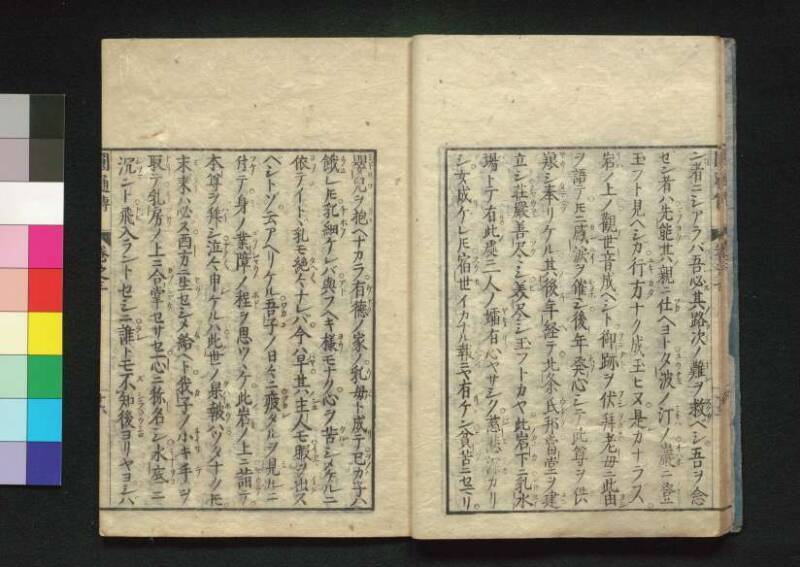 ン者ニシアラバ吾必其路次ノ難ヲ救ベシ吾ヲ念
セン者ハ先能其ノ親ニ仕ヘヨトタ波ノ汀ノ巖ニ登
玉フト見ヘシカ行方ナク成玉ヒヌ是カナラス
岩ノ上ノ觀世音成ヘシト御跡ヲ伏拜老母ニ此由
ヲ語テ𪜈ニ感淚ヲ催シ後年發心シテ此尊ヲ供
奉リケル其後年經テ此余氏邦當堂ヲ建
立シ莊嚴善尽シ美尽シ玉フトカヤ此岩下ニ乳水
場トテ有此處三人ノ孀有心ヤサシク慈悲深カリ
シ女成ケレ𪜈宿世イカナル報ニヤ有ケン貧苦ニセマリ
嬰兒ヲ抱ヘナカラ有德ノ家ノ乳母ト成テ已カ子ハ
餓レ𪜈乳細ケレバ與フヘキ樣モナク心ヲ苦シメケルニ
依テイトヽ乳モ絶々ナレバ今ハ早其ノ主人モ暇ヲ出ス
ヘシトソ云アヘリケル吾子ノ日々ニ疲タルヲ見ルニ
付テ身ノ業障ノ程ヲ思ツヽケ此岩ノ上ニ詣テ
本尊ヲ拜シ泣々申ケルハ此世ノ果報ハツタナクモ
末來ハ必ス西方ニ生セシメ給ヘト我子ノ小キ手ヲ
取テ乳房ノ上ニ合掌セサセ一心ニ称名シ水底ニ
沉ント飛入ラントセシニ誰トモ不知後ヨリヤヨシハ
圓通傳